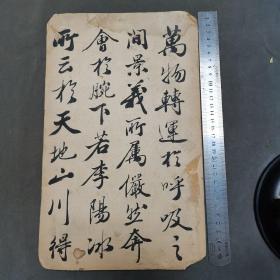 萬物轉運於呼吸之
間景義所属儼然奔
會於腕下若李陽冰
所云於天地山川得